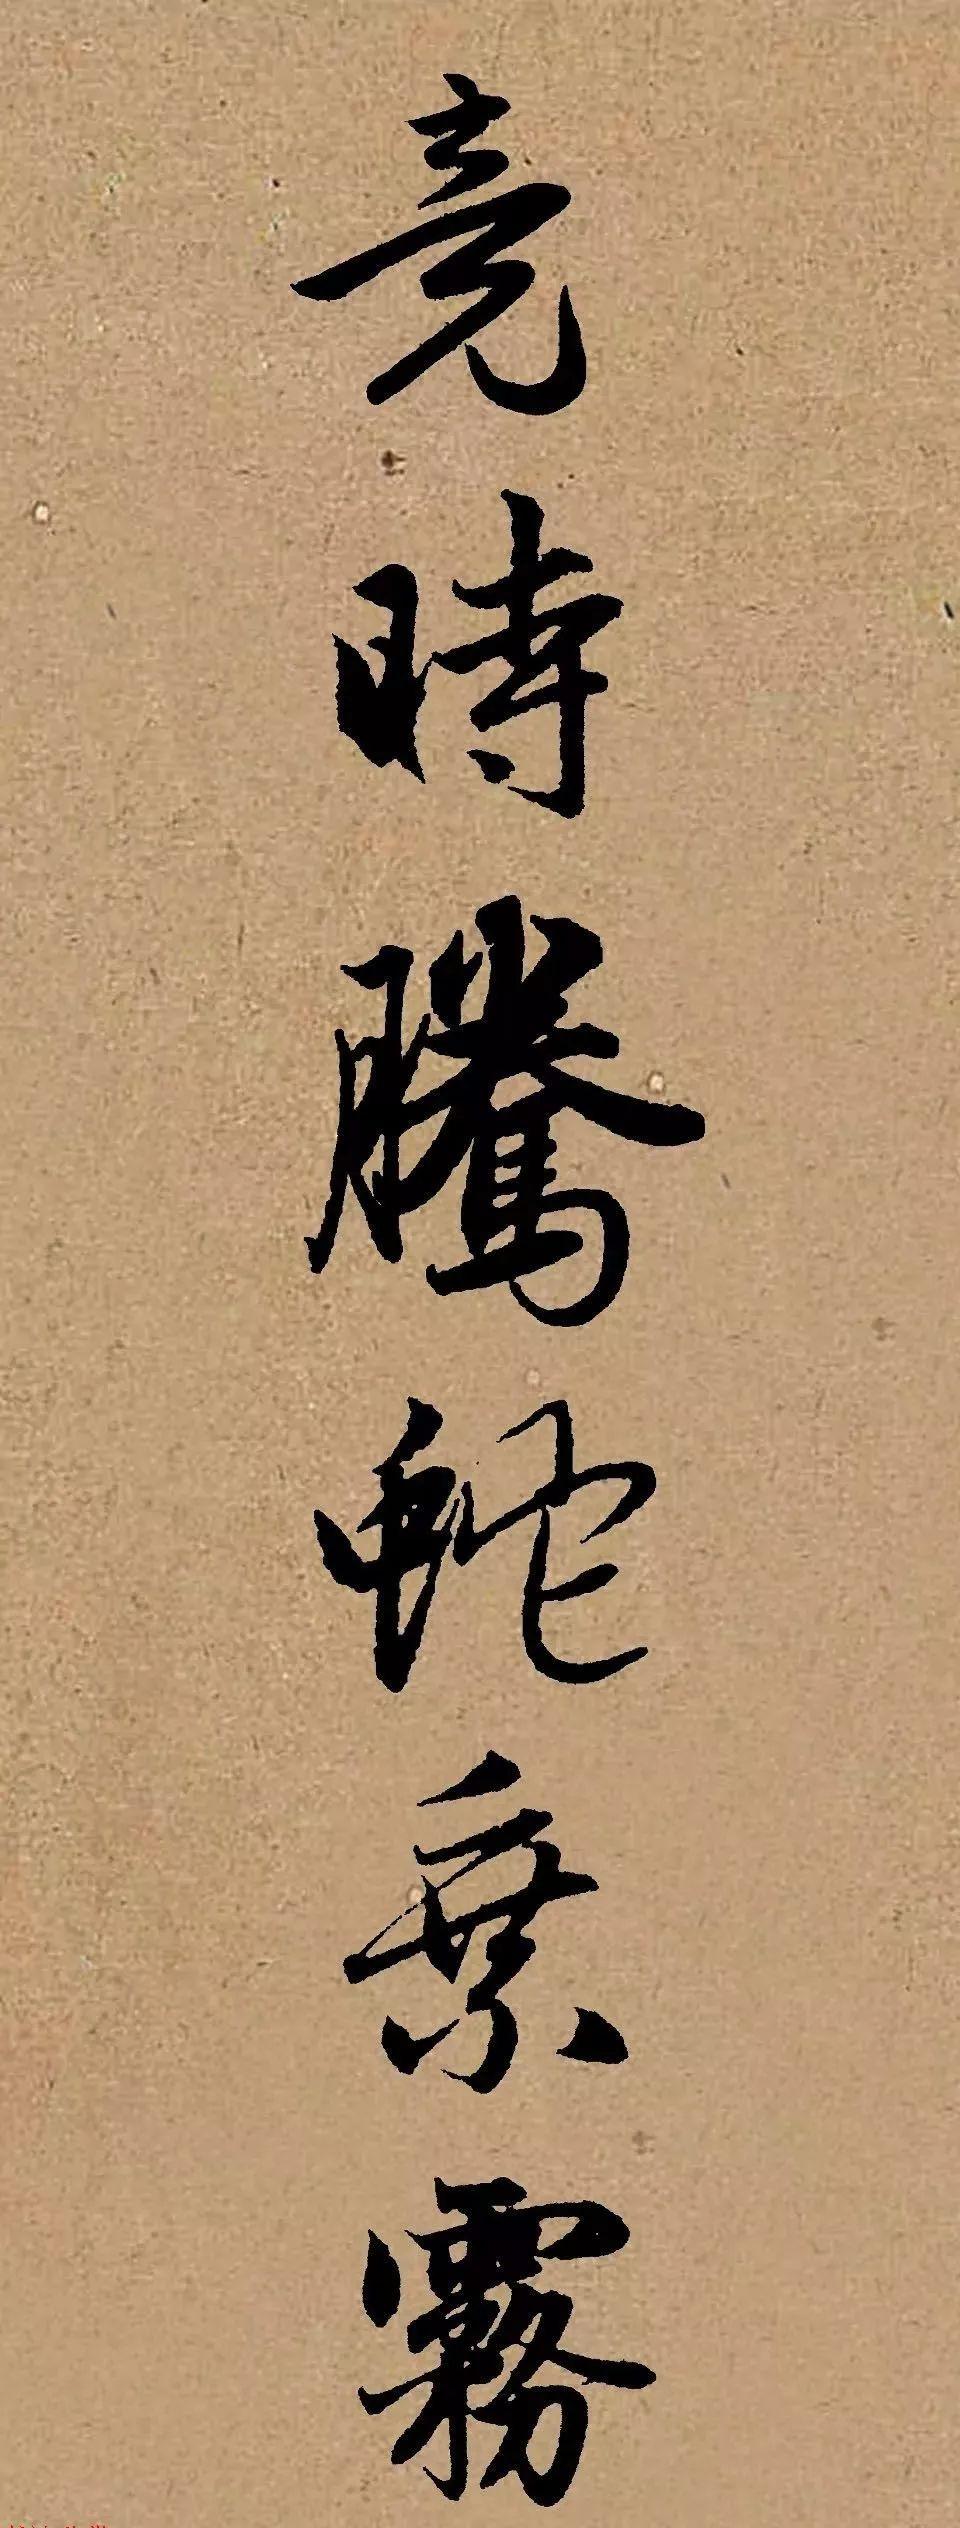 竟時騰蛇乗霧